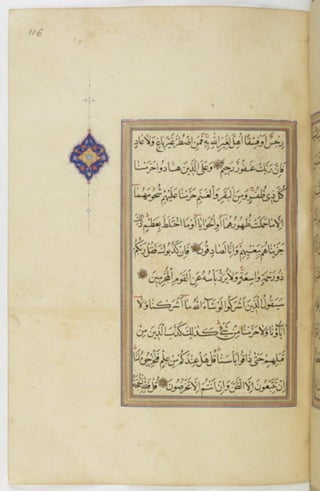 106
رِجْسٌ اَوْ فِسْقًا اُهِلَّ لِغَيْرِ اللهِ بِهِ فَمَنِ اضْطُرَّ غَيْرَ بَاغٍ وَلَا عَادٍ
فَاِنَّ رَبَّكَ غَفُورٌ رَحِيمٌ وَعَلَى الَّذِينَ هَادُوا حَرَّمْنَا
كُلَّ ذِي ظُفُرٍ وَمِنَ الْبَقَرِ وَالْغَنَمِ حَرَّمْنَا عَلَيْهِمْ شُحُومَهُمَا
اِلَّا مَا حَمَلَتْ ظُهُورُهُمَا اَوِ الْحَوَايَا اَوْ مَا اخْتَلَطَ بِعَظْمٍ ذٰلِكَ
جَزَيْنَاهُمْ بِبَغْيِهِمْ وَاِنَّا لَصَادِقُونَ فَاِنْ كَذَّبُوكَ فَقُلْ رَبُّكُمْ
ذُو رَحْمَةٍ وَاسِعَةٍ وَلَا يُرَدُّ بَأْسُهُ عَنِ الْقَوْمِ الْمُجْرِمِينَ
سَيَقُولُ الَّذِينَ اَشْرَكُوا لَوْ شَاءَ اللهُ مَا اَشْرَكْنَا وَلَا
آبَاؤُنَا وَلَا حَرَّمْنَا مِنْ شَيْءٍ كَذٰلِكَ كَذَّبَ الَّذِينَ مِنْ
قَبْلِهِمْ حَتَّى ذَاقُوا بَأْسَنَا قُلْ هَلْ عِنْدَكُمْ مِنْ عِلْمٍ فَتُخْرِجُوهُ لَنَا
اِنْ تَتَّبِعُونَ اِلَّا الظَّنَّ وَاِنْ اَنْتُمْ اِلَّا تَخْرُصُونَ قُلْ فَلِلّٰهِ الْحُجَّةُ